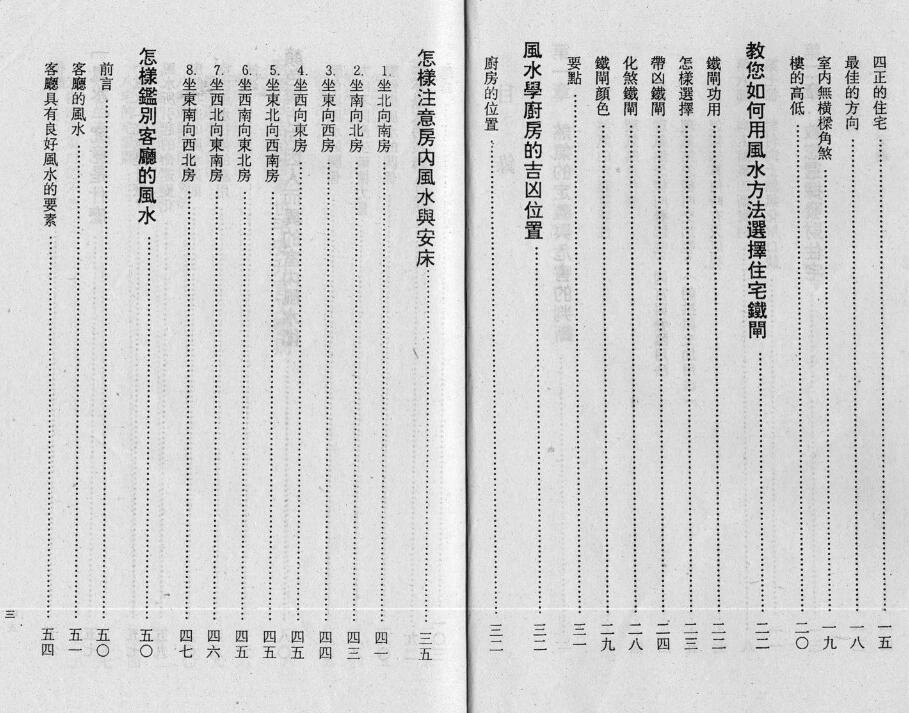 四正的住宅……一五
最佳的方向……一八
室内無橫樑角煞……一九
樓的高低……二〇
教您如何用風水方法選擇住宅鐵閘……二二
鐵閘功用……二二
怎樣選擇……二三
帶凶鐵閘……二四
化煞鐵閘……二八
鐵閘顏色……二九
要點……三一
風水學廚房的吉凶位置……三二
廚房的位置……三二
怎樣注意房内風水與安床……三五
1.坐北向南房……四一
2.坐南向北房……四三
3.坐東向西房……四四
4.坐西向東房……四五
5.坐東北向西南房……四五
6.坐西南向東北房……四五
7.坐西北向東南房……四六
8.坐東南向西北房……四七
怎樣鑑別客廳的風水……五〇
前言……五〇
客廳的風水……五一
客廳具有良好風水的要素……五四
三